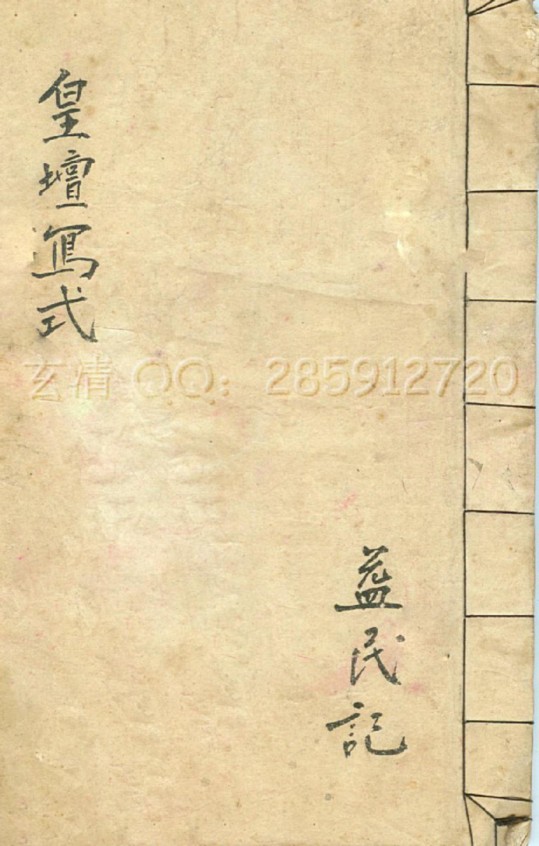 皇壇寫式
益民記
玄清 QQ：285912720